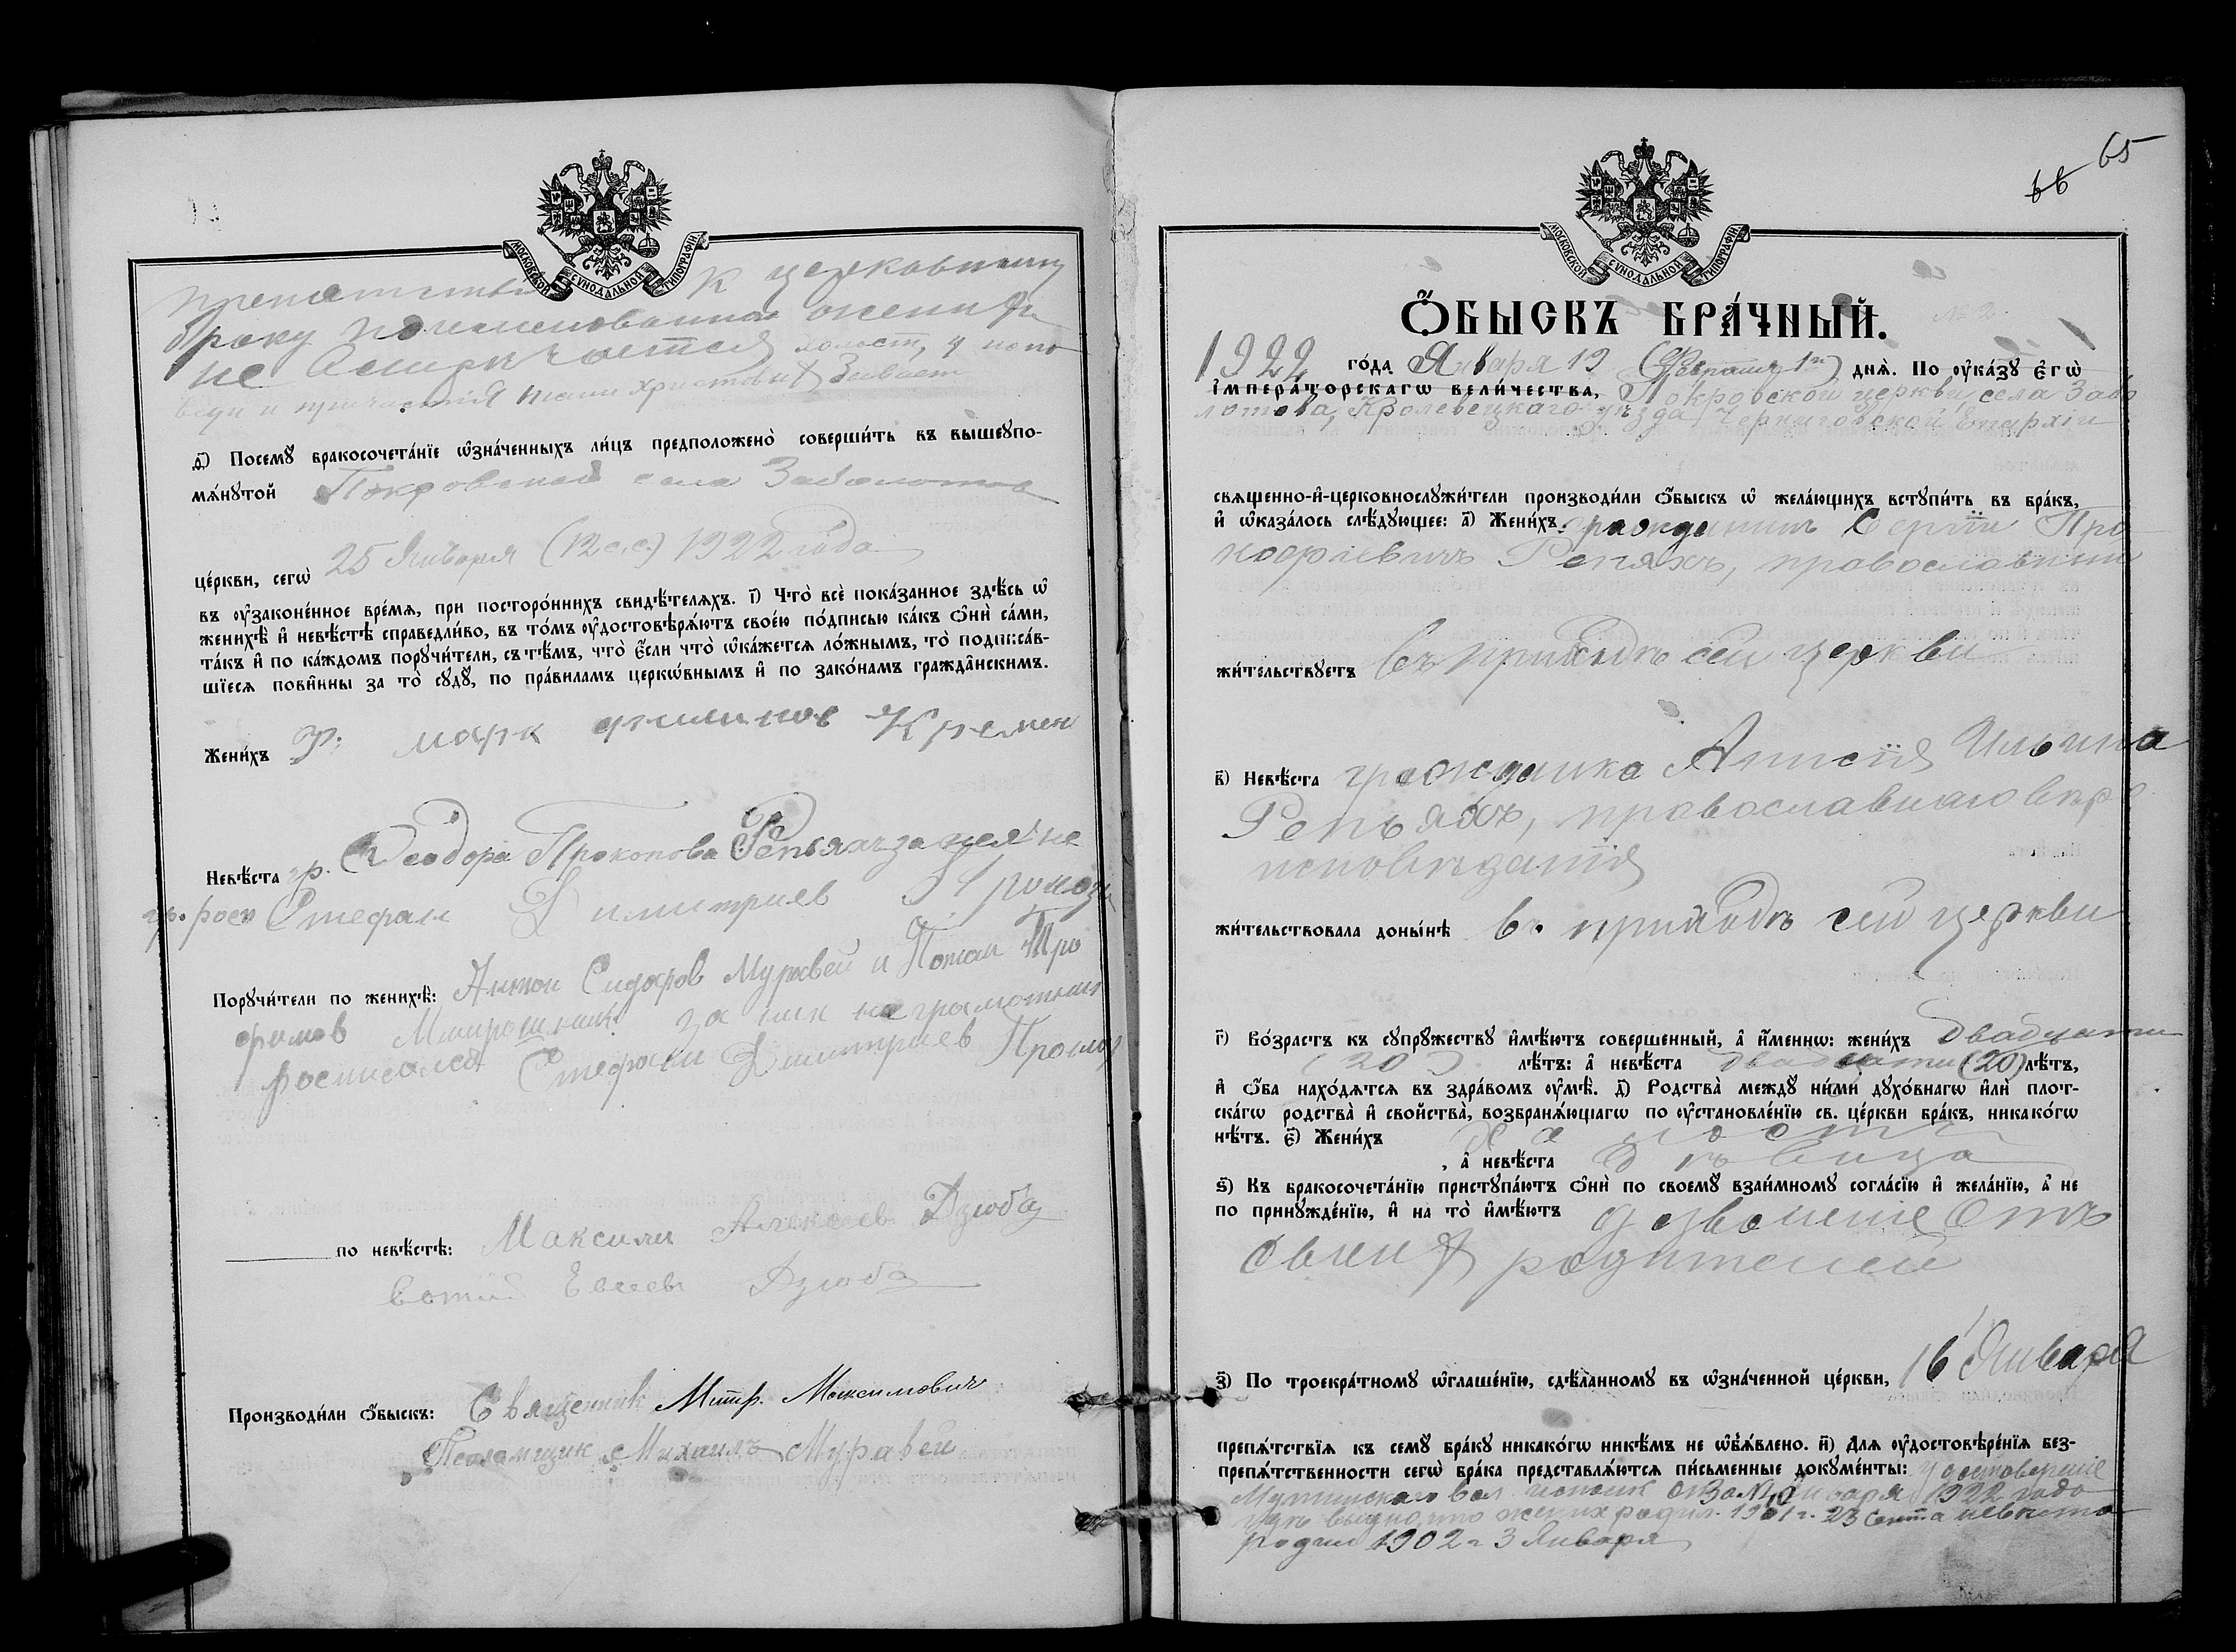 МОСКОВСКОЙ СѴНОДАЛЬНОЙ ТИПОГРАФІИ
к церковному
браку поименованного жениха
не
холост, у испо
веди и причастія таин христовых бывает
д҃) Посемꙋ бракосочета́нїе ѡ҆зна́ченныхъ ли́цъ предположено̀ соверши́ть въ вышеꙋпо-
мѧ́нꙋтой Покровской села Заболотова
це́ркви, сегѡ̀ 25 Января (12 с.с.) 1922 года
въ ᲂу҆законе́нное вре́мѧ, при посторо́ннихъ свидѣ́телѧхъ. і҃) Что̀ всѐ пока́занное здѣ́сь ѡ҆
женихѣ̀ и҆ невѣ́стѣ справедли́во, въ то́мъ ᲂу҆достовѣрѧ́ютъ свое́ю по́дписью ка́къ ѻ҆нѝ са́ми,
та́къ и҆ по ка́ждомъ порꙋчи́тели, съ тѣ́мъ, что̀ є҆́сли что̀ ѡ҆ка́жетсѧ ло́жнымъ, то̀ подписа́в-
шїесѧ пови́нны за то̀ сꙋдꙋ̀, по пра́виламъ церко́внымъ и҆ по зако́намъ гражда́нскимъ.
Жени́хъ Гр. марк филипов Кремен
Невѣ́ста гр. Феодора Прокопова Репьяхъ за нея не
гр. росп Стефан Димитриев
Порꙋчи́тели по женихѣ̀: Антон Сидоров Муравей и Потап Тро
фимов Мирошник за них неграмотных
росписался Стефан Димитриев
по невѣ́стѣ: Максим Алексеев Дзюба
Евсеев Дзюба
Производи́ли ѻ҆́быскъ: Священник Митр. Максимович
Псаломщик Михаилъ Муравей
66 65
МОСКОВСКОЙ СѴНОДАЛЬНОЙ ТИПОГРАФІИ
Ѻ҆́БЫСКЪ БРА́ЧНЫЙ.
№ 2.
1922 го́да Января 19 (Февраля 1го) днѧ̀. По ᲂу҆ка́зꙋ Є҆гѡ̀
І҆мпера́торскагѡ вели́чества, Покровской церкви, села Забо
лотова, Кролевецкаго уѣзда Черниговской Епархіи
свѧщенно-и҆-церковнослꙋжи́тели производи́ли ѻ҆́быскъ ѡ҆ жела́ющихъ встꙋпи́ть въ бра́къ,
и҆ ѡ҆каза́лось слѣ́дꙋющее: а҃) Жени́хъ гражданинъ Сергій Про
кофіевичъ Репяхъ, православный
жи́тельствꙋетъ въ приходѣ сей церкви
в҃) Невѣ́ста гражданка Анисія Ильина
Репьяхъ, православнаго вѣро
исповѣданія
жи́тельствовала доны́нѣ въ приходѣ сей церкви
г҃) Во́зрастъ къ сꙋпрꙋ́жествꙋ и҆мѣ́ютъ соверше́нный, а҆ и҆́меннѡ: жени́хъ двадцати
(20) лѣ́тъ: а҆ невѣ́ста двадцати (20) лѣ́тъ,
и҆ ѻ҆́ба нахо́дѧтсѧ въ здра́вомъ ᲂу҆мѣ̀. д҃) Родства̀ междꙋ̀ ни́ми дꙋхо́внагѡ и҆лѝ плот-
ска́гѡ родства̀ и҆ свойства̀, возбранѧ́ющагѡ по ᲂу҆становле́нїю св. це́ркви бра́къ, никако́гѡ
нѣ́тъ. є҃) Жени́хъ холостъ
, а҆ невѣ́ста дѣвица
ѕ҃) Къ бракосочета́нїю пристꙋпа́ютъ ѻ҆нѝ по своемꙋ̀ взаи́мномꙋ согла́сїю и҆ жела́нїю, а҆ не
по принꙋжде́нїю, и҆ на то̀ и҆мѣ́ютъ дозволеніе отъ
своих родителей
з҃) По троекра́тномꙋ ѡ҆глаше́нїю, сдѣ́ланномꙋ въ ѡ҆зна́ченной це́ркви, 16 Января
препѧ́тствїѧ къ семꙋ̀ бра́кꙋ никако́гѡ никѣ́мъ не ѡ҆б̾ѧ́влено. и҃) Длѧ ᲂу҆достовѣре́нїѧ без-
препѧ́тственности сегѡ̀ бра́ка представлѧ́ютсѧ пи́сьменные докꙋме́нты: удостоверение
вол. исполк. Января 1922 года
видно, что жених родил. 1901 г. 23 Сент. а невеста
родил 1902 г 3 Января